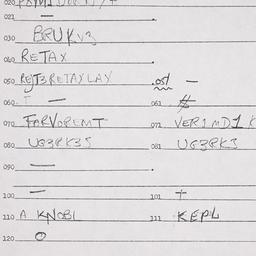 020
021 —
030 BRUKV2
040 RETAX
050 REJ3RETAXLAY .051 —
060 — 061 #
070 FARVOREMT 071 VER1MD1K
080 UG3RK3S 081 UG3RKJ
090 —
100 — 101 +
110 A KNOBL 111 KEPL
120 O